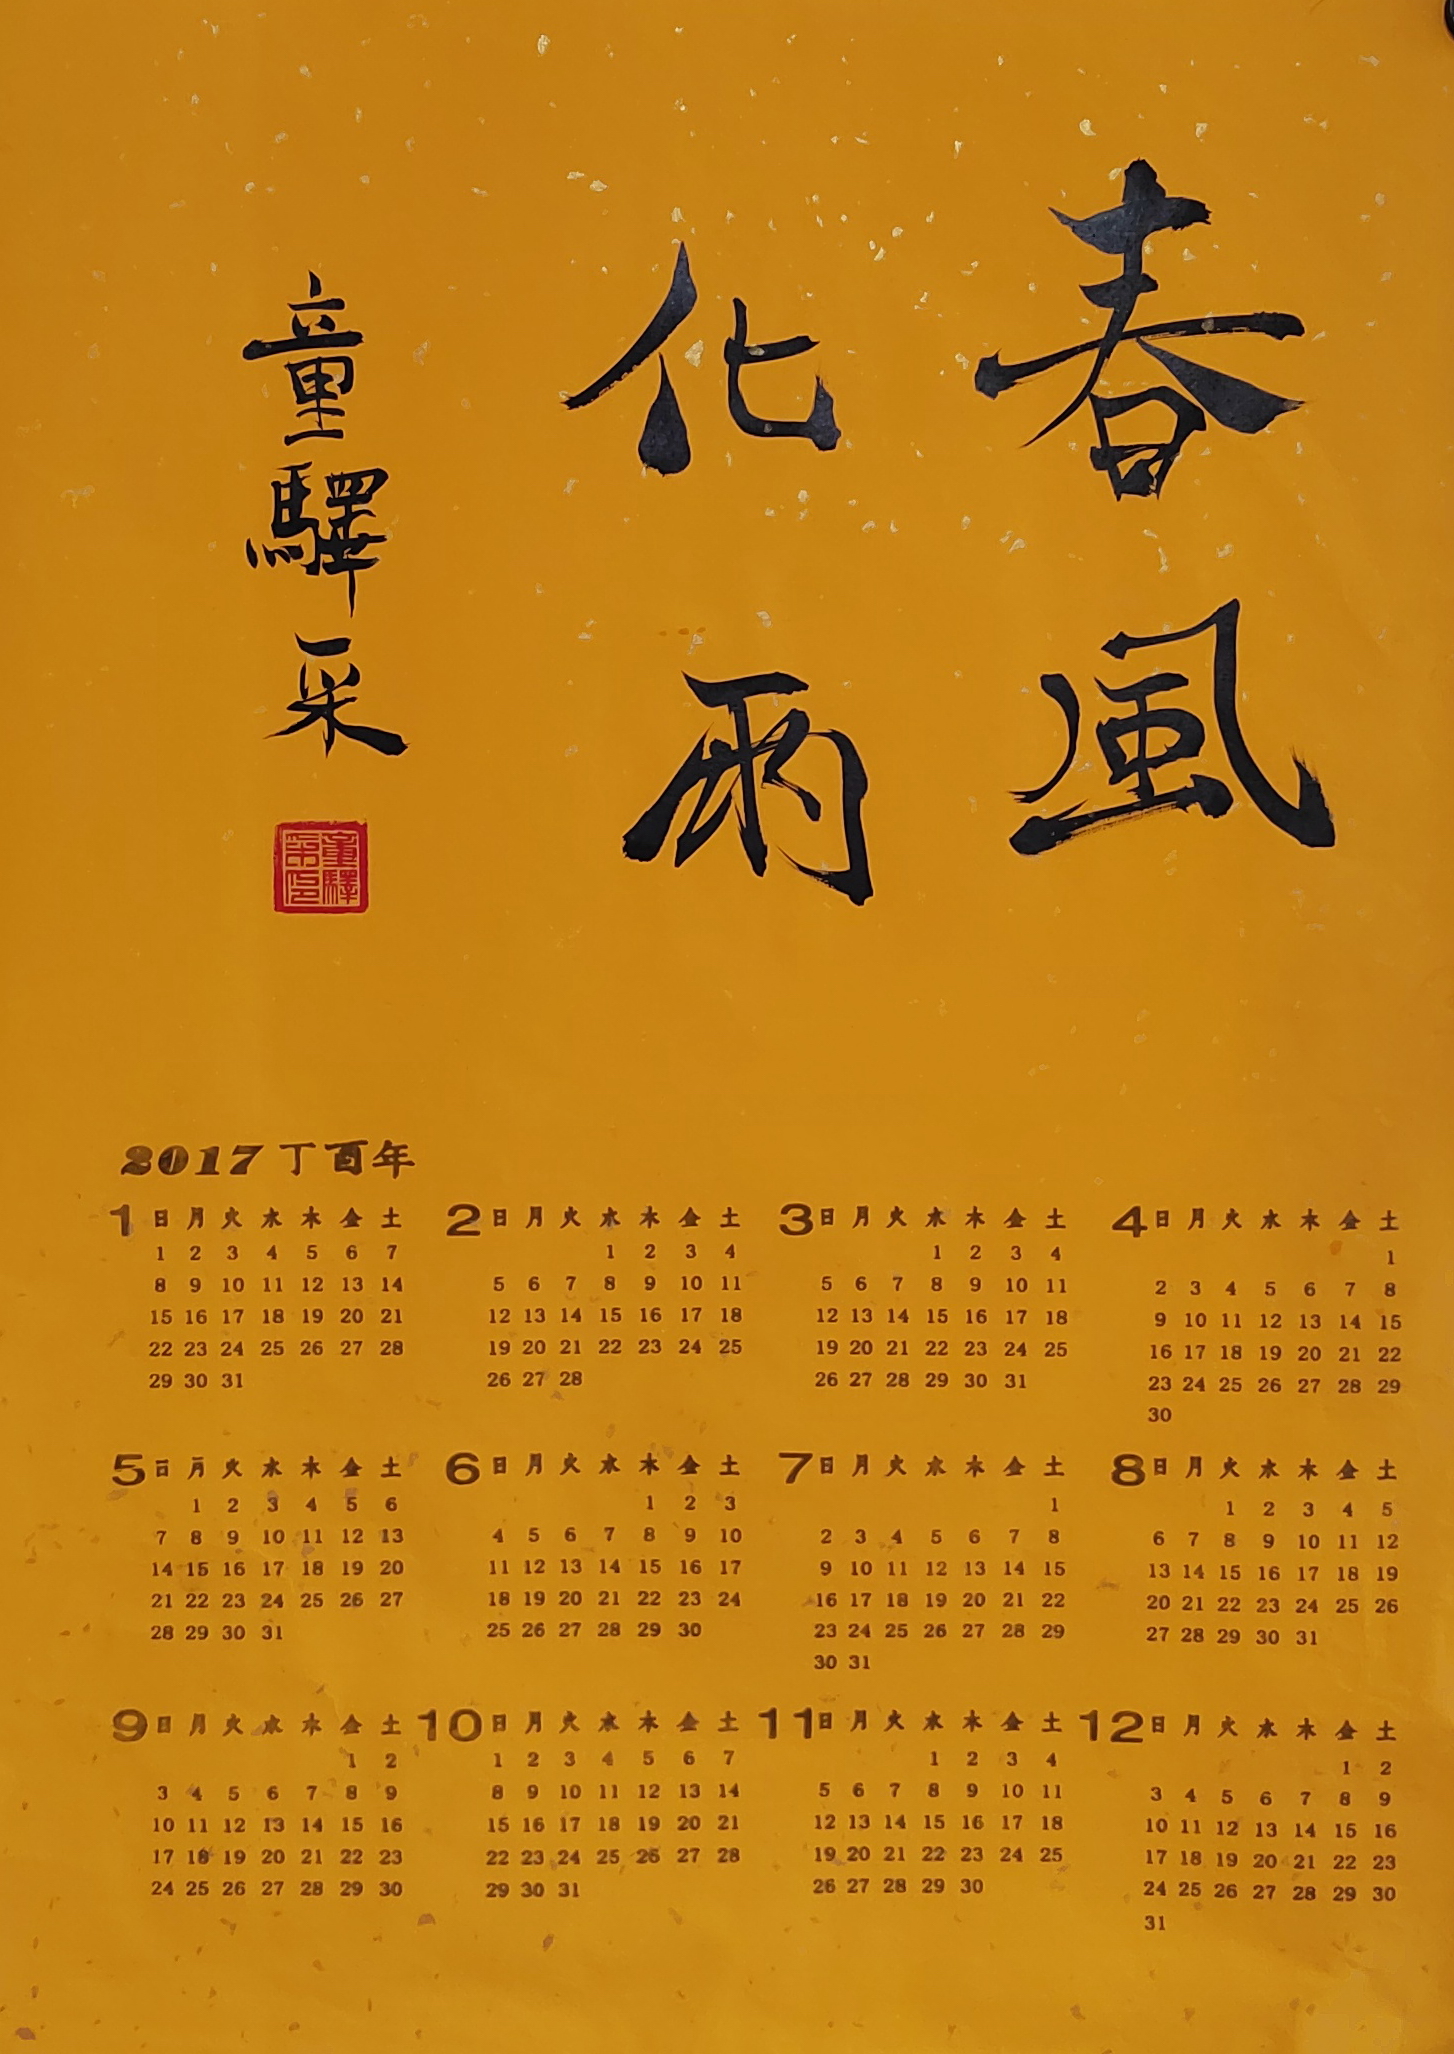 春風
化雨
童驛采
童驛
采印
2017 丁酉年
1 日 月 火 水 木 金 土
1 2 3 4 5 6 7
8 9 10 11 12 13 14
15 16 17 18 19 20 21
22 23 24 25 26 27 28
29 30 31
2 日 月 火 水 木 金 土
1 2 3 4
5 6 7 8 9 10 11
12 13 14 15 16 17 18
19 20 21 22 23 24 25
26 27 28
3 日 月 火 水 木 金 土
1 2 3 4
5 6 7 8 9 10 11
12 13 14 15 16 17 18
19 20 21 22 23 24 25
26 27 28 29 30 31
4 日 月 火 水 木 金 土
1
2 3 4 5 6 7 8
9 10 11 12 13 14 15
16 17 18 19 20 21 22
23 24 25 26 27 28 29
30
5 日 月 火 水 木 金 土
1 2 3 4 5 6
7 8 9 10 11 12 13
14 15 16 17 18 19 20
21 22 23 24 25 26 27
28 29 30 31
6 日 月 火 水 木 金 土
1 2 3
4 5 6 7 8 9 10
11 12 13 14 15 16 17
18 19 20 21 22 23 24
25 26 27 28 29 30
7 日 月 火 水 木 金 土
1
2 3 4 5 6 7 8
9 10 11 12 13 14 15
16 17 18 19 20 21 22
23 24 25 26 27 28 29
30 31
8 日 月 火 水 木 金 土
1 2 3 4 5
6 7 8 9 10 11 12
13 14 15 16 17 18 19
20 21 22 23 24 25 26
27 28 29 30 31
9 日 月 火 水 木 金 土
1 2
3 4 5 6 7 8 9
10 11 12 13 14 15 16
17 18 19 20 21 22 23
24 25 26 27 28 29 30
10 日 月 火 水 木 金 土
1 2 3 4 5 6 7
8 9 10 11 12 13 14
15 16 17 18 19 20 21
22 23 24 25 26 27 28
29 30 31
11 日 月 火 水 木 金 土
1 2 3 4
5 6 7 8 9 10 11
12 13 14 15 16 17 18
19 20 21 22 23 24 25
26 27 28 29 30
12 日 月 火 水 木 金 土
1 2
3 4 5 6 7 8 9
10 11 12 13 14 15 16
17 18 19 20 21 22 23
24 25 26 27 28 29 30
31